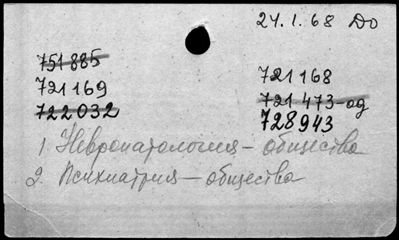 24.1.68 До
751 885
721 169
722 032
721 168
721 473-од
728943
1. Невропатология – общества
2. Психиатрия – общества